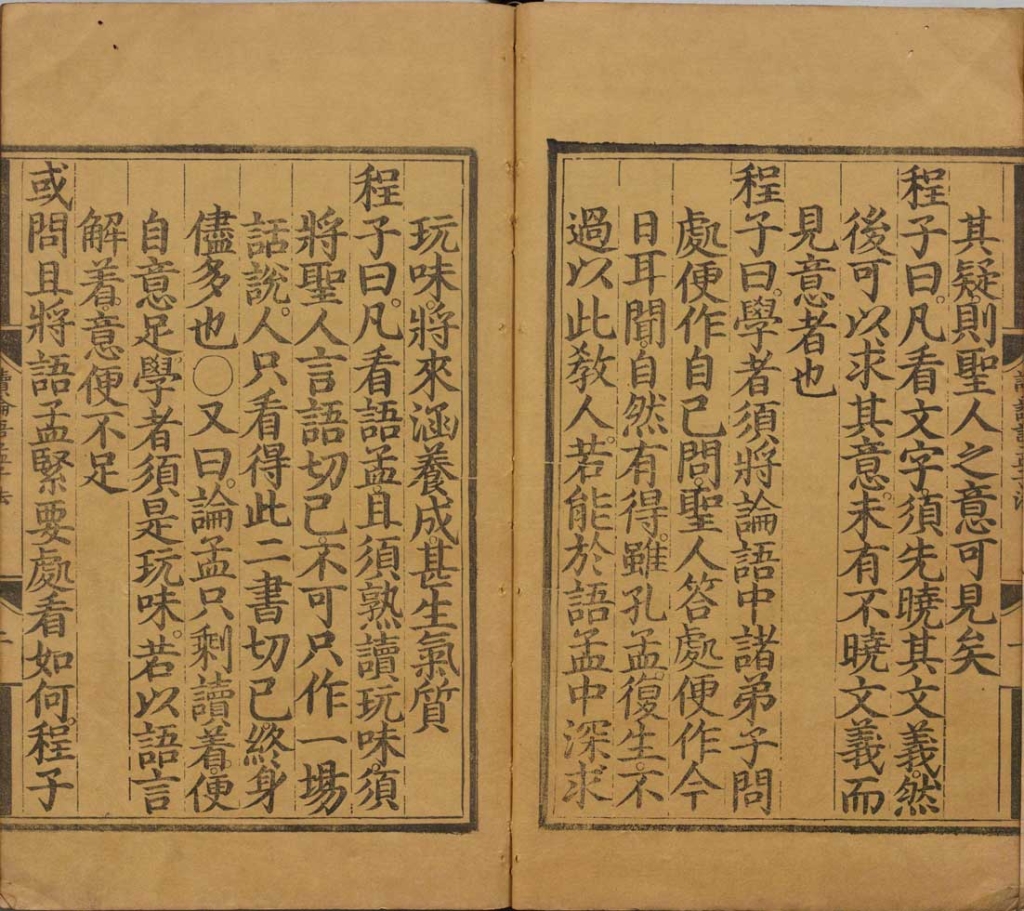 其疑則聖人之意可見矣
程子曰。凡看文字。須先曉其文義。然
後可以求其意。未有不曉文義而
見意者也
程子曰。學者須將論語中諸弟子問
處便作自己問。聖人答處便作今
日耳聞。自然有得。雖孔孟復生。不
過以此教人。若能於語孟中深求
玩味。將來涵養成。甚生氣質
程子曰。凡看語孟。且須熟讀玩味。須
將聖人言語切己。不可只作一場
話說。人只看得此二書切己。終身
儘多也○又曰。論孟只剩讀着。便
自意足。學者須是玩味。若以語言
解着。意便不足
或問且將語孟緊要處看如何。程子